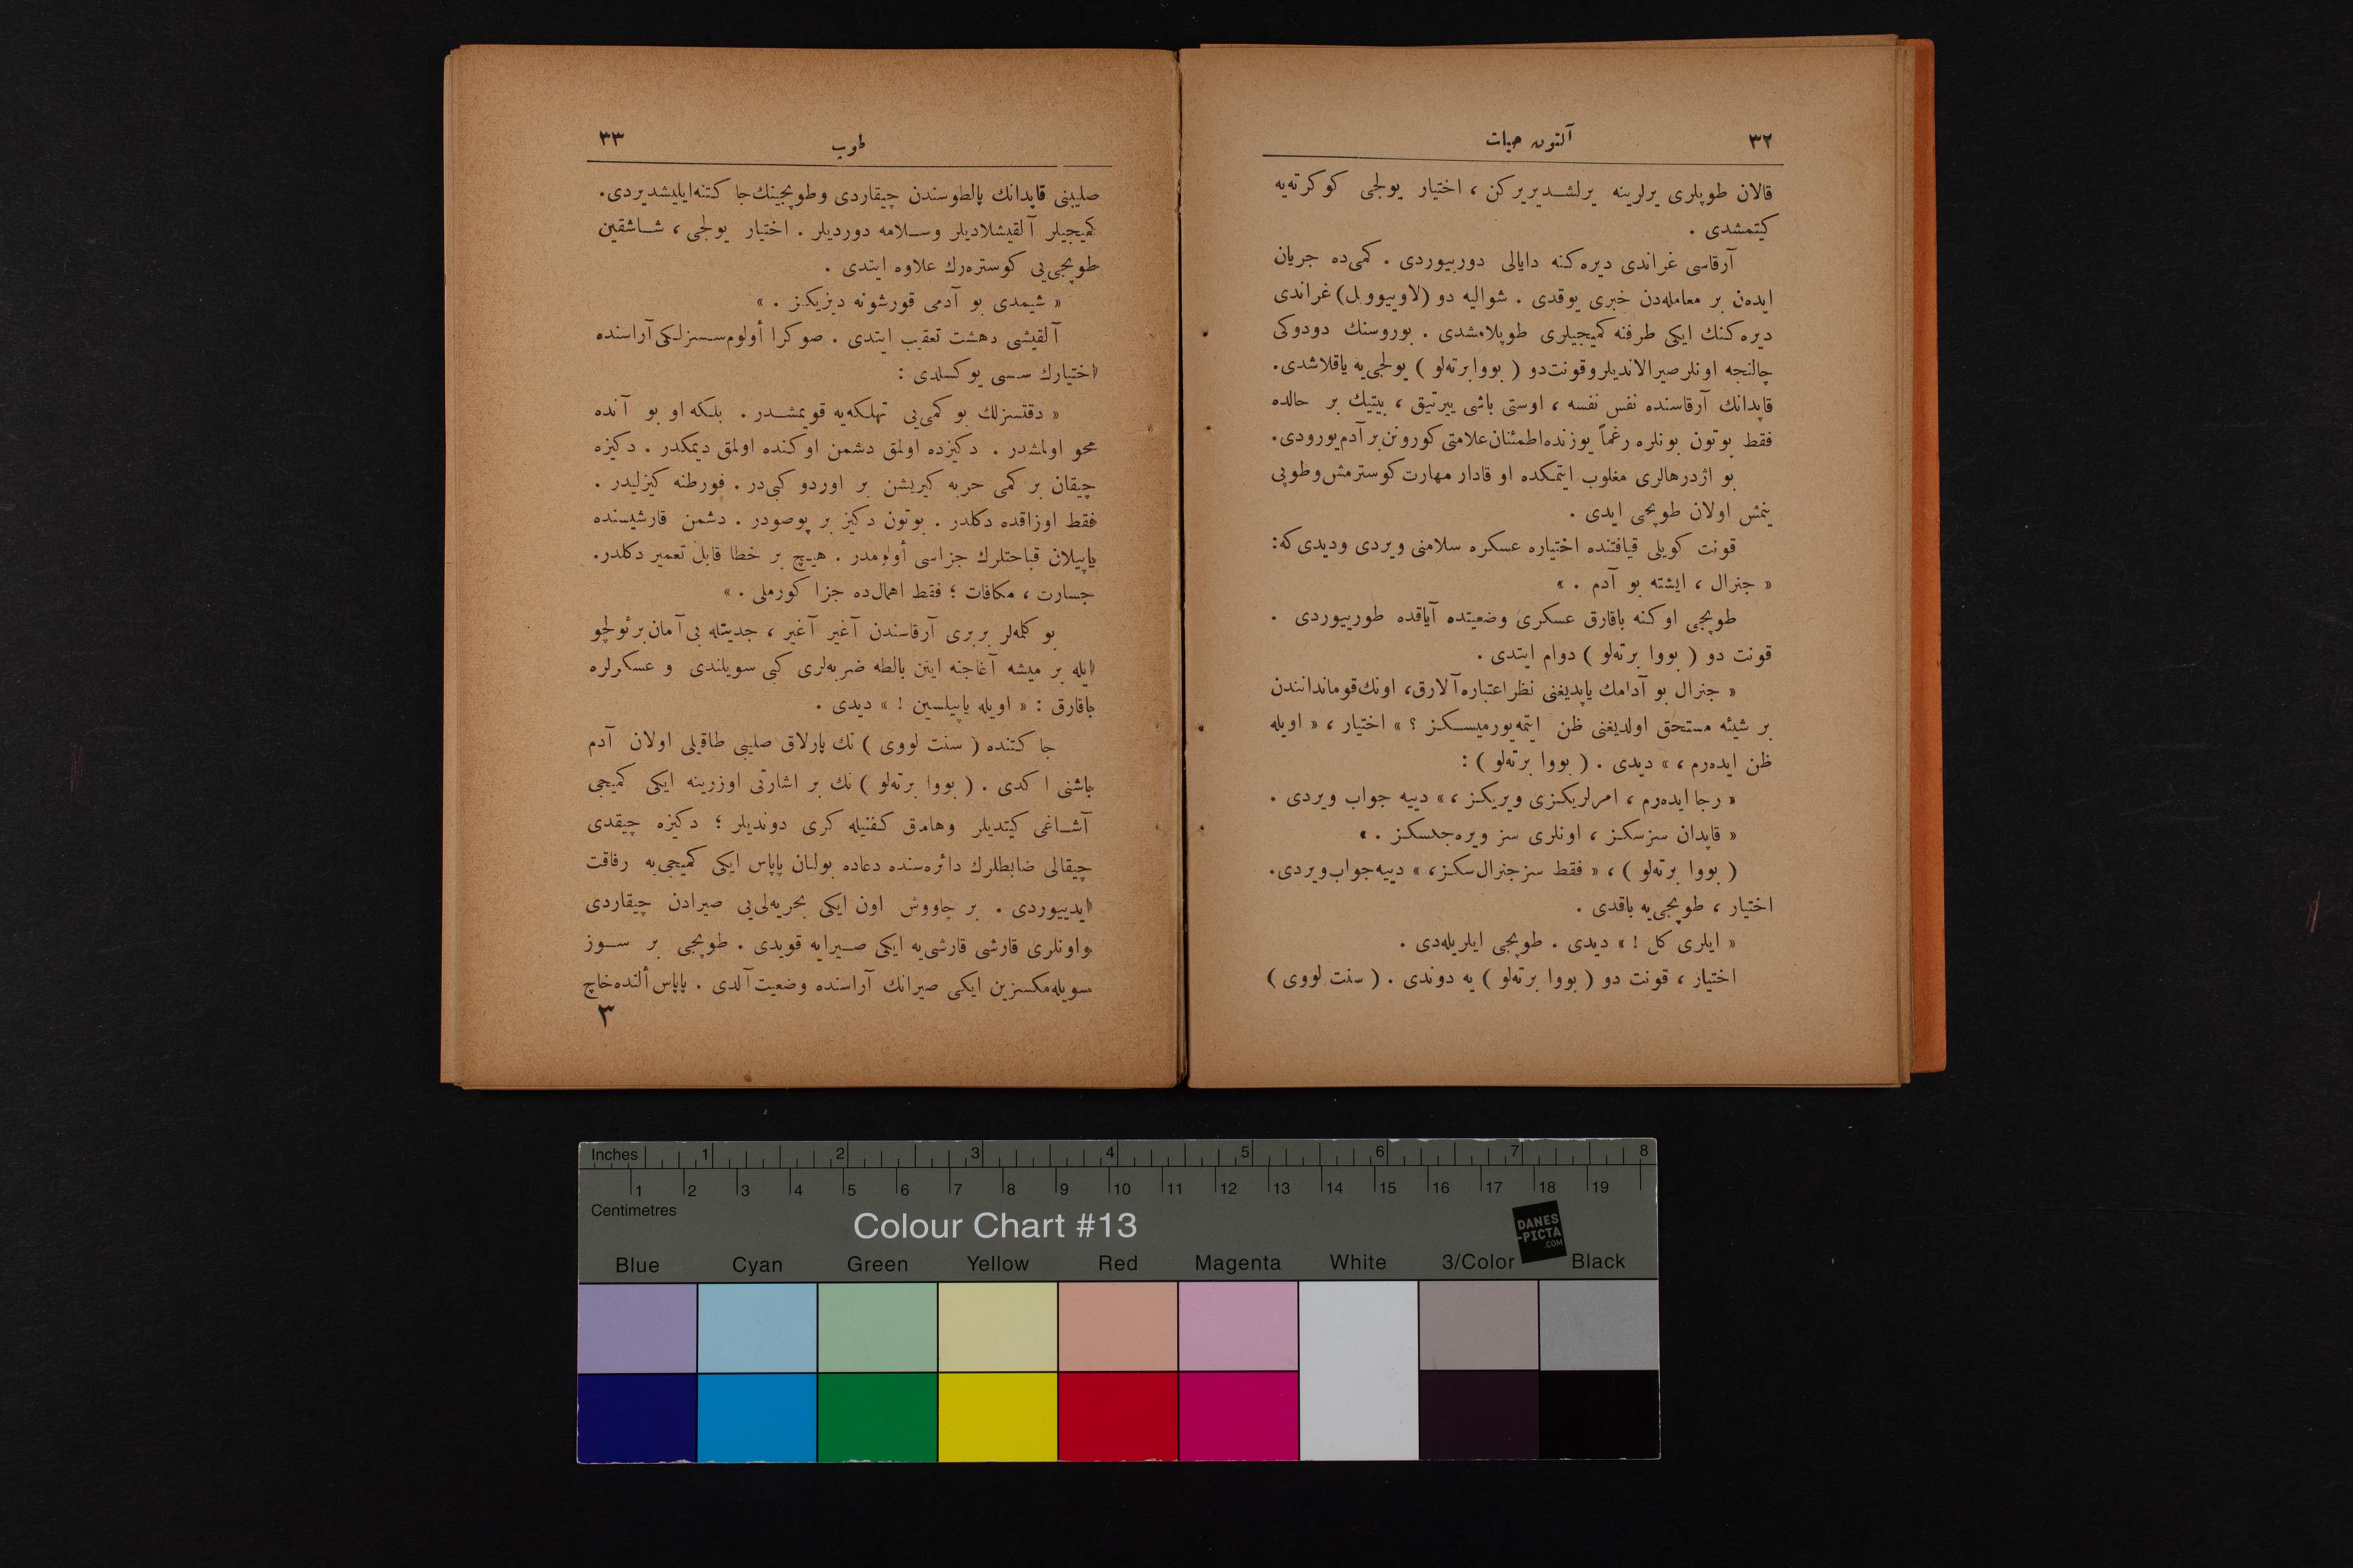 ٣٢
آلتون حيات
قالان طوپلری یرلرینه یرلشدیریركن ، اختیار یولجی كوكرته‌یه
كیتمشدی .
آرقاسی غراندی دیره‌كنه دایالی دوریوردی . كمی‌ده جریان
ایدەن بر معامله‌دن خبری یوقدی . شوالیه دو (لاویووبل) غراندی
دیره‌كنك ایكی طرفنه كمیجیلری طوپلامشدی . بوروسنك دودوكی
چالنجه اونلر صیرالاندیلر و قونت دو ( بووا برته‌لو ) یولجی‌یه یاقلاشدی.
قاپدانك آرقاسنده نفس نفسه ، اوستی باشی ییرتیق ، بیتیك بر حالده
فقط بوتون بونلره رغماً یوزنده اطمئنان علامتی كورونن بر آدم یورودی.
بو اژدرهالری مغلوب ایتمكده او قادار مهارت كوسترمش و طوپی
یڭمش اولان طوپجی ایدی .
قونت كویلی قیافتنده اختیاره عسكره سلامنی ویردی و دیدی كه:
« جنرال ، ایشته بو آدم . »
طوپجی اوكنه باقارق عسكری وضعیتده آیاقده طوریوردی .
قونت دو ( بووا برته‌لو ) دوام ایتدی .
« جنرال بو آدامك یاپدیغنی نظر اعتباره آلارق، اونك قوماندانندن
بر شیئه مستحق اولدیغنی ظن ایتمه‌یورمیسكز ؟ » اختیار ، « اویله
ظن ایده‌رم ، » دیدی . ( بووا برته‌لو ) :
« رجا ایده‌رم ، امرلریكزی ویریكز ، » دییه جواب ویردی .
« قاپدان سزسكز ، اونلری سز ویره‌جكسكز . »
( بووا برته‌لو ) ، « فقط سز جنرال‌سكز ، » دییه جواب ویردی.
اختیار ، طوپجی‌یه باقدی .
« ایلری كل ! » دیدی . طوپجی ایلریله‌دی .
اختیار ، قونت دو ( بووا برته‌لو ) یه دوندی . ( سنت لووی )
طوپ
٣٣
صلیبنی قاپدانك پالطوسندن چیقاردی و طوپجینك جاكتنه ایلیشدیردی.
كمیجیلر آلقیشلادیلر و سلامه دوردیلر . اختیار یولجی ، شاشقین
طوپجی‌یی كوستره‌رك علاوه ایتدی .
« شیمدی بو آدمی قورشونه دیزیكز . »
آلقیشی دهشت تعقیب ایتدی . صوكرا أولوم سسزلكی آراسنده
اختیارك سسی یوكسلدی :
« دقتسزلك بو كمی‌یی تهلكه‌یه قویمشدر . بلكه او بو آنده
محو اولمشدر . دكیزده اولمق دشمن اوكنده اولمق دیمكدر . دكیزه
چیقان بر كمی حربه كیریشن بر اوردو كبی‌در . فورطنه كیزلیدر .
فقط اوزاقده دكلدر . بوتون دكیز بر پوصودر . دشمن قارشیسنده
یاپیلان قباحتلرك جزاسی أولومدر . هیچ بر خطا قابل تعمیر دكلدر.
جسارت ، مكافات ؛ فقط اهمال‌ده جزا كورملی . »
بو كلمه‌لر بربری آرقاسندن آغیر آغیر ، جدیتله بی آمان بر ئولچو
ایله بر میشه آغاجنه اینن بالطه ضربه‌لری كبی سویلندی و عسكرلره
باقارق : « اویله یاپیلسین ! » دیدی .
جاكتنده ( سنت لووی ) نك پارلاق صلیبی طاقیلی اولان آدم
باشنی اكدی . ( بووا برته‌لو ) نك بر اشارتی اوزرینه ایكی كمیجی
آشاغی كیتدیلر و هامق كفنیله كری دوندیلر ؛ دكیزه چیقدی
چیقالی ضابطلرك دائره‌سنده دعاده بولنان پاپاس ایكی كمیجی‌یه رفاقت
ایدییوردی . بر چاووش اون ایكی بحریه‌لی‌یی صیرادن چیقاردی
و اونلری قارشی قارشی‌یه ایكی صیرایه قویدی . طوپجی بر سوز
سویله‌مكسزین ایكی صیرانك آراسنده وضعیت آلدی . پاپاس ألنده خاچ
٣
Inches 1 2 3 4 5 6 7 8
1 2 3 4 5 6 7 8 9 10 11 12 13 14 15 16 17 18 19
Centimetres
Colour Chart #13
DANES
-PICTA
.COM
Blue Cyan Green Yellow Red Magenta White 3/Color Black